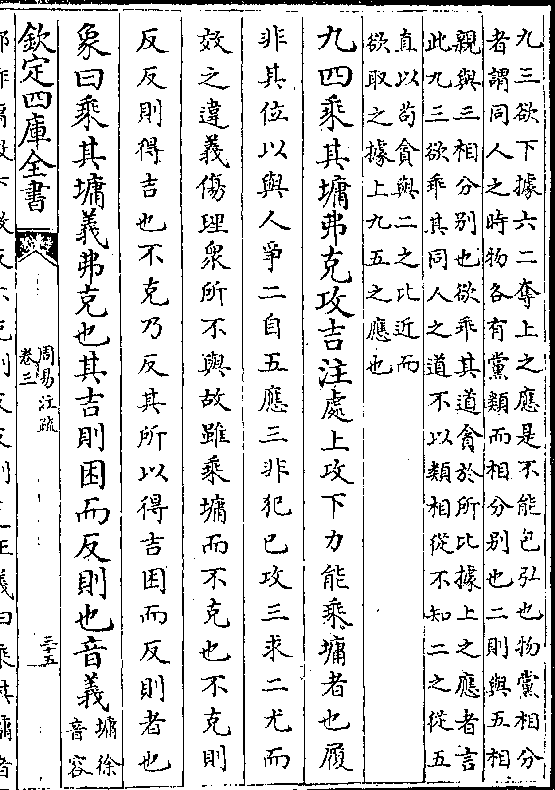 九三欲下據六二奪上之應是不能包弘也物黨相分
者謂同人之時物各有黨類而相分别也二則與五相
親與三相分别也欲乖其道貪於所比據上之應者言
此九三欲乖其同人之道不以類相從不知二之從五
直以苟貪與二之比近而
欲取之據上九五之應也
九四乘其墉弗克攻吉注處上攻下力能乘墉者也履
非其位以與人爭二自五應三非犯己攻三求二尤而
效之違義傷理衆所不與故雖乘墉而不克也不克則
反反則得吉也不克乃反其所以得吉困而反則者也
象曰乘其墉義弗克也其吉則困而反則也音義墉徐
音容
欽定四庫全書
周易注疏
卷三
三十五